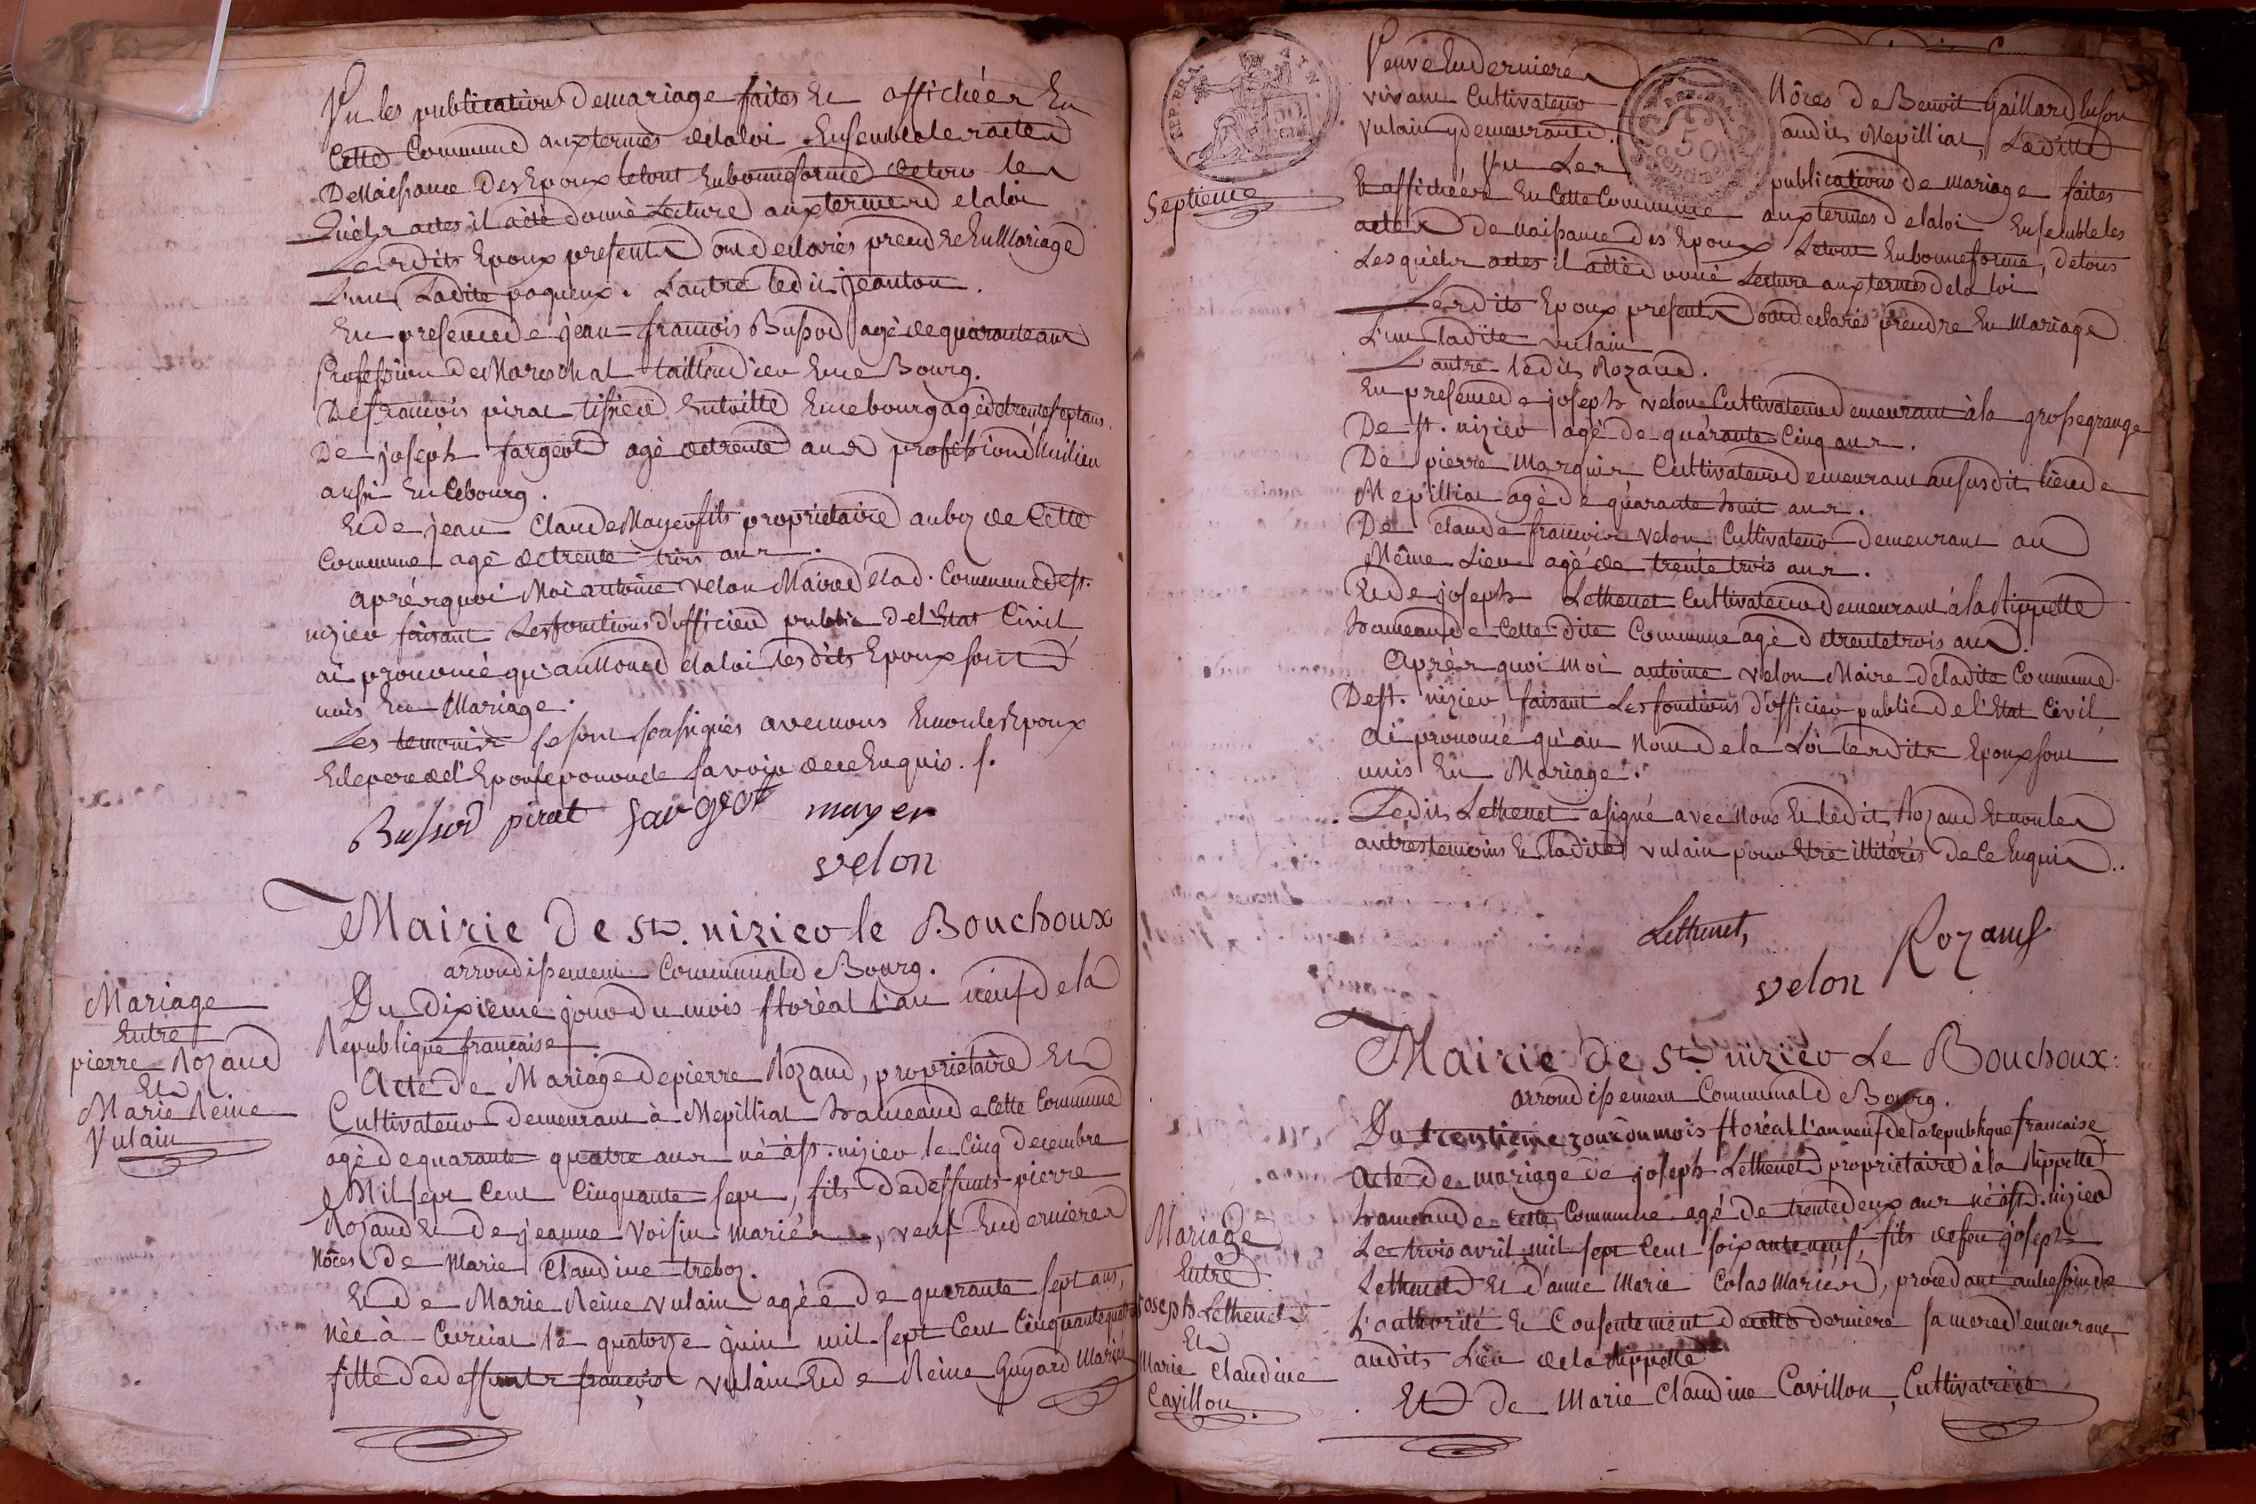 Vu les publications de mariage faites Et affichées En
Cette Commune aux termes de la loi. Ensemble les actes
De Naissance des Epoux le tout En bonne forme de tous les
Quels actes il a été donné Lecture aux termes de la loi
Les dits Epoux presents ont declarés prendre En Mariage
L'un Ladite paqueux. L'autre ledit jeanton.
En presence de jean-françois Bussod agé de quarante ans
Profession de Marechal taillandier En ce Bourg.
De françois pirat tissier En toille En ce bourg agé de trente sept ans.
De joseph fargeot agé de trente ans profession d'huilier
aussi En Ce bourg.
Et de jean Claude Mayer fils proprietaire au biz de Cette
Commune agé de trente trois ans.
après quoi Moi antoine velon Maire de la d. Commune de st.
nizier faisant Les fonctions d'officier public de l'Etat Civil
ai prononcé qu'au Nom de la loi les dits Epoux sont
unis En Mariage.
Les temoins se sont soussignés avec nous Et non les Epoux
Et le pere de l'Epouse pour ne le savoir de ce Enquis. /.
Bussod pirat fargeot mayer
velon
Mairie De st. nizier le Bouchoux
arrondissement Communal de Bourg.
Mariage
Entre
pierre Rozand
Et
Marie Reine
Vulain
Du Dixieme jour du mois floréal l'an neuf de la
Republique francaise.
Acte de Mariage de pierre Rozand, proprietaire Et
Cultivateur demeurant à Mepilliat hameau de Cette Commune
agé de quarante quatre ans né à st. nizier le Cinq decembre
Mil sept Cent Cinquante sept, fils de deffunts pierre
Rozand Et de jeanne Voisin mariés, veuf En dernieres
Nôces De Marie Claudine treboz.
Et de Marie Reine Vulain agée de quarante sept ans,
Née à Curciat le quatorze juin mil sept Cent Cinquante quatre
fille de deffunts françois vulain Et de Reine Guyard Mariés
Veuve En dernieres Nôces De Benoit Gaillard En son
vivant Cultivateur audit Mepilliat, Ladite
Vulain y demeurante.
Septieme
Vu Les publications de Mariage faites
Et affichées En Cette Commune aux termes de la loi Ensemble les
actes de Naissance des Epoux Le tout En bonne forme, de tous
Lesquels actes il a été donné Lecture aux termes de la loi
Les dits Epoux presents ont declarés prendre En Mariage
L'un ladite vulain
L'autre ledit Rozand.
En presence de joseph velon Cultivateur demeurant à la grosse grange
De st. nizier agé de quarante Cinq ans.
De pierre Marguin Cultivateur demeurant au susdit lieu de
Mepilliat agé de quarante huit ans.
De Claude françois velon Cultivateur demeurant au
Même Lieu agé de trente trois ans.
Et de joseph Lethenet Cultivateur demeurant à la Rippette
hameau de Cette dite Commune agé de trente trois ans.
Après quoi moi antoine velon Maire de ladite Commune
De st. nizier faisant Les fonctions d'officier public de l'Etat Civil
ai prononcé qu'au Nom de la Loi les dits Epoux sont
unis En Mariage.
Ledit Lethenet a signé avec Nous Et ledit Rozand Et non les
autres temoins Et ladite vulain pour être illitérés De Ce Enquis.
Lethenet,
Rozand
velon
Mairie de st. nizier Le Bouchoux:
arrondissement Communal de Bourg.
Mariage
Entre
Joseph Lethenet
Et
Marie Claudine
Cavillon.
Du trentieme jour du mois floréal l'an neuf de la republique francaise
Acte de mariage de joseph Lethenet proprietaire à la Rippette
hameau de Cette Commune agé de trente deux ans né à st. nizier
Le trois avril mil sept Cent soixante neuf, fils de feu joseph
Lethenet Et d'anne Marie Colas Mariés, procedant au besoin de
L'authorité Et Consentement de cette derniere sa mere demeurant
audit Lieu de la Rippette
Et de Marie Claudine Cavillon, Cultivatrice